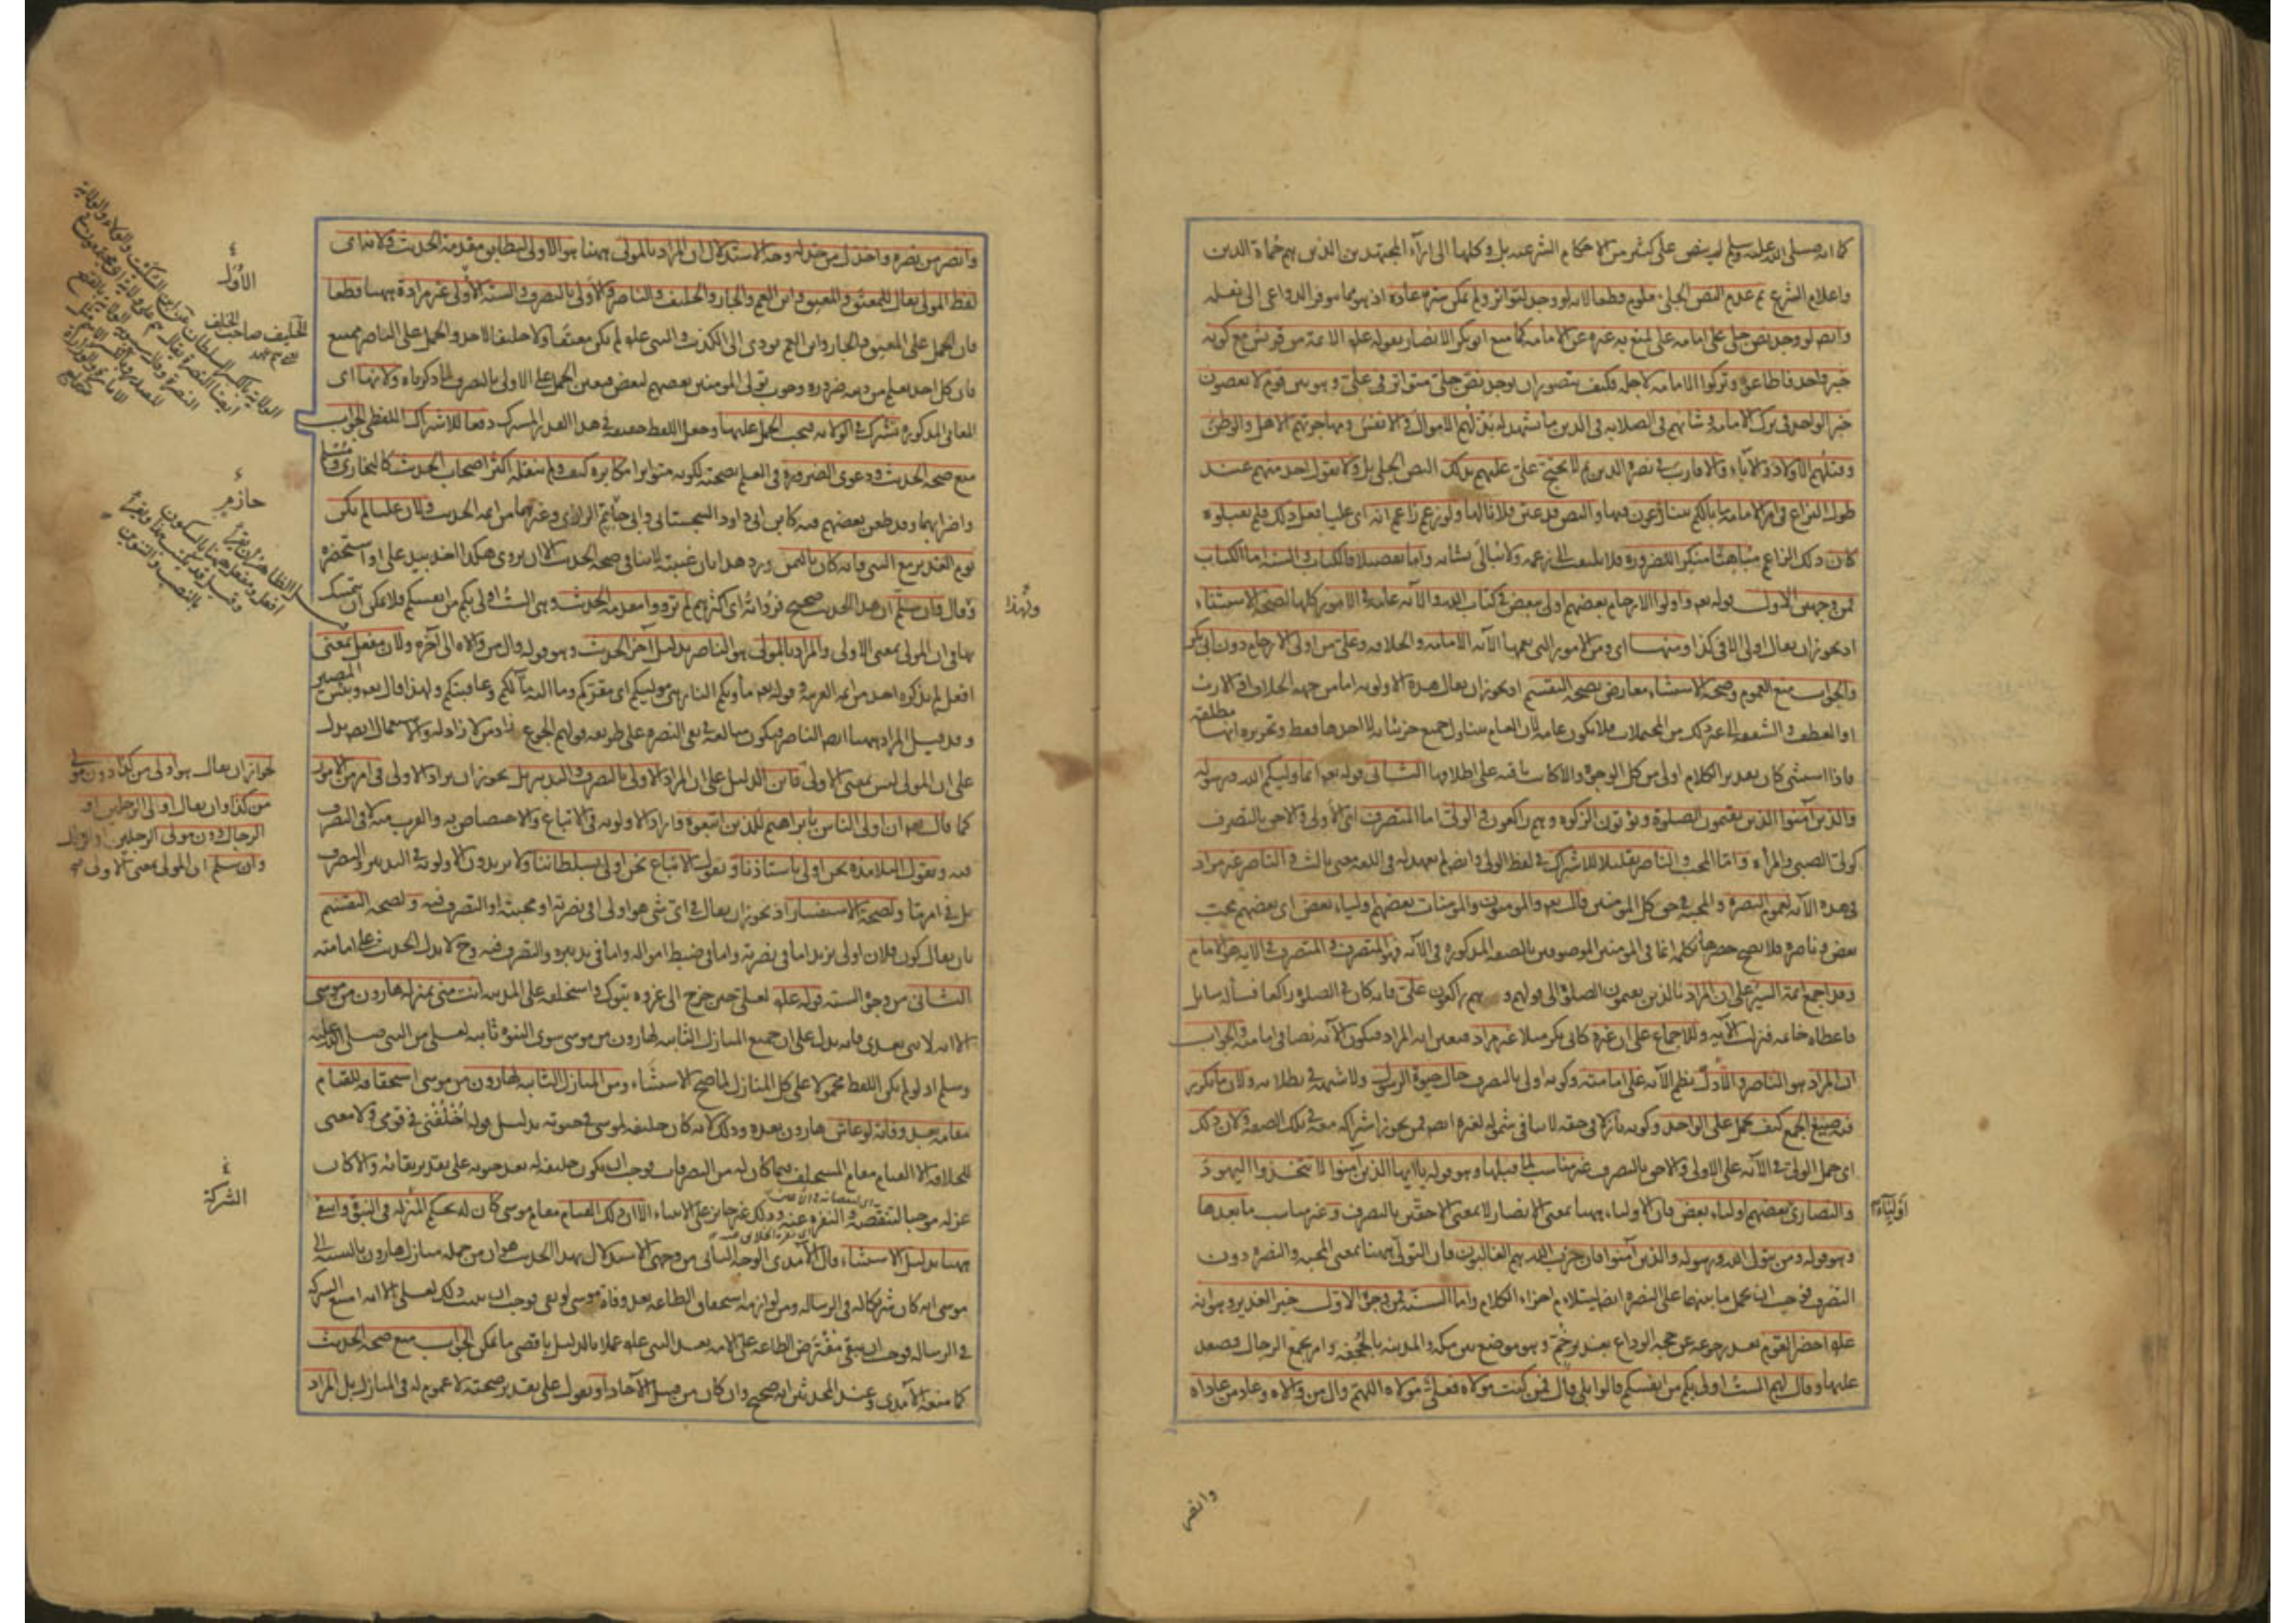 كما انه صلى الله عليه وسلم لم ينص على كثير من الاحكام الشرعية بل وكلها الى اراء المجتهدين الذين هم حماة الدين
واعلام الشرع ثم عدم النص الجلي معلوم قطعا لانه لو وجد لتواتر ولم يمكن ستره عادة اذ هو مما يتوفر الدواعي الى نقله
وايضا لو وجد نص جلي على امامة علي لمنع به غيره عن الامامة كما منع ابو بكر الانصار بقوله عليه الائمة من قريش مع كونه
خبر واحد فاطاعوه وتركوا الامامة لاجله فكيف يتصور ان يوجد نص جلي متواتر في علي وهو بين قوم لا يعصون
خبر الواحد في ترك الامامة وشانهم في الصلابة في الدين ما يشهد له بذلهم الاموال والانفس ومهاجرتهم الاهل والوطن
وقتلهم الاولاد والاباء والاقارب في نصرة الدين ثم لا يحتج علي عليهم بذلك النص الجلي بل ولا يقول احد منهم عند
طول النزاع في امر الامامة ما بالكم تتنازعون فيها والنص قد عين فلانا لها ولو زعم زاعم انه اي عليا فعل ذلك فلم يقبلوه
كان ذلك الزاعم مباهتا منكرا للضرورة فلا يلتفت الى زعمه ولا يبالى بشانه واما تفصيلا فالكتاب والسنة اما الكتاب
فمن وجهين الاول قوله تعم واولوا الارحام بعضهم اولى ببعض في كتاب الله والآية عامة في الامور كلها لصحة الاستثناء
اذ يجوز ان يقال اولى الا في كذا ومنها اي ومن الامور التي يعمها الآية الامامة والخلافة وعلي من اولي الارحام دون ابي بكر
والجواب منع العموم وصحة الاستثناء معارض بصحة التقسيم اذ يجوز ان يقال هذه الاولوية اما من جهة الخلافة او الارث
او العطف والشفقة الى غير ذلك من المحتملات فلا يكون عامة لان العام يتناول جميع جزئياته لا احدها فقط وتحريره انها مطلقة
فاذا استثني كان تقدير الكلام اولى من كل الوجوه والا كانت باقية على اطلاقها الثاني قوله تعم انما وليكم الله ورسوله
والذين آمنوا الذين يقيمون الصلوة ويؤتون الزكوة وهم راكعون والولي اما المتصرف اي الاولى والاحق بالتصرف
كولي الصبي والمرأة واما المحب والناصر تقليلا للاشتراك في لفظ الولي وايضا لم يعهد له في اللغة معنى ثالث والناصر غير مراد
في هذه الآية لعموم النصرة والمحبة في حق كل المؤمنين قال تعم والمؤمنون والمؤمنات بعضهم اولياء بعض اي بعضهم محب
بعض وناصره فلا يصح حصرها بكلمة انما في المؤمنين الموصوفين بالصفة المذكورة في الآية فهو المتصرف والمتصرف في الآية هو الامام
وقد اجمع ائمة التفسير على ان المراد بالذين يقيمون الصلوة الى قوله وهم راكعون علي فانه كان في الصلوة راكعا فسأله سائل
فاعطاه خاتمه فنزلت الآية وللاجماع على ان غيره كابي بكر مثلا غير مراد فتعين انه المراد فيكون الآية نصا في امامته والجواب
ان المراد هو الناصر والا دل نظم الآية على امامته وكونه اولى بالتصرف حال حيوة الرسول ولا شبهة في بطلانه ولان ما تكرر
فيه صيغ الجمع كيف يحمل على الواحد وكونه نازلا في حقه لا ينافي شموله لغيره ايضا ممن يجوز اشتراكه معه في تلك الصفة ولان ذلك
اي حمل الولي في الآية على الاولى والاحق بالتصرف غير مناسب لما قبلها وهو قوله يا ايها الذين آمنوا لا تتخذوا اليهود
والنصارى بعضهم اولياء بعض فان الاولياء ههنا بمعنى الانصار لا بمعنى الاحقين بالتصرف وغير مناسب ما بعدها
اولياء
وهو قوله ومن يتول الله ورسوله والذين آمنوا فان حزب الله هم الغالبون فان التولي ههنا بمعنى المحبة والنصرة دون
التصرف فوجب ان يحمل ما بينهما على النصرة ايضا ليتلاءم اجزاء الكلام واما السنة فمن وجوه الاول خبر الغدير وهو انه
عليه احضر القوم بعد رجوعه عن حجة الوداع بغدير خم وهو موضع بين مكة والمدينة بالجحفة وامر بجمع الرحال فصعد
عليها وقال لهم الست اولى بكم من انفسكم قالوا بلى قال فمن كنت مولاه فعلي مولاه اللهم وال من والاه وعاد من عاداه
وانصر
وانصر من نصره واخذل من خذله وجه الاستدلال ان المراد بالمولى ههنا هو الاولى ليطابق مقدمة الحديث ولانه اي
لفظ المولى يقال للمعتق والمعتق وابن العم والجار والحليف والناصر والاولى بالتصرف والستة الاول غير مرادة ههنا قطعا
فان الحمل على المعتق والجار وابن العم يؤدي الى الكذب والنبي عليه لم يكن معتقا ولا حليفا لاحد والحمل على الناصر ممتنع
فان كل احد يعلم من دينه ضرورة وجوب تولي المؤمنين بعضهم لبعض فتعين الحمل على الاولى بالتصرف لما ذكرناه ولانها اي
المعاني المذكورة تشترك في الولاية فيجب الحمل عليها وجعل اللفظ حقيقة في هذا القدر المشترك دفعا للاشتراك اللفظي الجواب
منع صحة الحديث ودعوى الضرورة في العلم بصحته لكونه متواترا مكابرة كيف ولم ينقله اكثر اصحاب الحديث كالبخاري ومسلم
واضرابهما وقد طعن بعضهم فيه كابن ابي داود السجستاني وابي حاتم الرازي وغيرهما من ائمة الحديث ولان عليا لم يكن
يوم الغدير مع النبي فانه كان باليمن ورد هذا بان غيبته لا ينافي صحة الحديث الا ان يروى هكذا اخذ بيد علي او استحضره
وقال وان سلم ان هذا الحديث صحيح فرواته اي اكثرهم لم ترووا مقدمة الحديث وهي الست اولى بكم من انفسكم فلا يمكن ان يتمسك
بها في ان المولى بمعنى الاولى والمراد بالمولى هو الناصر بدليل آخر الحديث وهو قوله وال من والاه الى آخره ولان مفعل بمعنى
افعل لم يذكره احد من ائمة العربية وقوله تعم مأويكم النار هي موليكم اي مقركم وما اليه مآلكم وعاقبتكم ولهذا قال تعم وبئس المصير
وقد قيل المراد ههنا ايضا الناصر فيكون مبالغة في نفي النصرة على طريقة قولهم الجوع زاد من لا زاد له والاستعمال ايضا يدل
على ان المولى ليس بمعنى الاولى فاين الدليل على ان المراد الاولى بالتصرف والتدبير بل يجوز ان يراد الاولى في امر من الامور
كما قال تعم ان اولى الناس بابراهيم للذين اتبعوه واراد الاولوية في الاتباع والاختصاص به والقرب منه لا في التصرف
فيه ويقول التلامذة نحن اولى باستاذنا ويقول الاتباع نحن اولى بسلطاننا ولا يريدون الاولوية في التدبير والتصرف
بل في امر ما ولصحة الاستفسار اذ يجوز ان يقال في اي شيء هو اولى افي نصرته او محبته او التصرف فيه ولصحة التقسيم
بان يقال كون فلان اولى بزيد اما في نصرته واما في ضبط امواله واما في تدبيره والتصرف فيه وح لا يدل الحديث على امامته
الثاني من وجوه السنة قوله عليه لعلي حين خرج الى غزوة تبوك واستخلفه على المدينة انت مني بمنزلة هارون من موسى
الا انه لا نبي بعدي فانه يدل على ان جميع المنازل الثابتة لهارون من موسى سوى النبوة ثابتة لعلي من النبي صلى الله عليه
وسلم اذ لو لم يكن اللفظ محمولا على كل المنازل لما صح الاستثناء ومن المنازل الثابتة لهارون من موسى استحقاقه للقيام
مقامه بعد وفاته لو عاش هارون بعده وذلك لانه كان خليفة لموسى في حيوته بدليل قوله اخلفني في قومي ولا معنى
للخلافة الا القيام مقام المستخلف فيما كان له من التصرفات فوجب ان يكون خليفة له بعد موته على تقدير بقائه والا كان
عزله موجبا لتنقصه والنفرة عنه وذلك غير جائز على الانبياء الا ان ذلك القيام مقام موسى كان له بحكم المنزلة في النبوة وانتفى
ههنا بدليل الاستثناء قال الآمدي الوجه الثاني من وجهي الاستدلال بهذا الحديث هو ان من جملة منازل هارون بالنسبة الى
موسى انه كان شريكا له في الرسالة ومن لوازمه استحقاق الطاعة بعد وفاة موسى لو بقي فوجب ان يثبت ذلك لعلي الا انه امتنع الشركة
في الرسالة فوجب ان يبقى مفترض الطاعة على الامة بعد النبي عليه عملا بالدليل باقصى ما يمكن الجواب منع صحة الحديث
كما منعه الآمدي وعند المحدثين انه صحيح وان كان من قبيل الآحاد او نقول على تقدير صحته لا عموم له في المنازل بل المراد
الاول
الحليف صاحب الحلف
حازم
ولهذا
الظاهر ان يقرأ
لجواز ان يقال هو اولى من كذا دون مولى
من كذا وان يقال اولى الرجلين او
الرجال دون مولى الرجلين او الرجال
وان سلم ان المولى بمعنى الاولى
الشركة